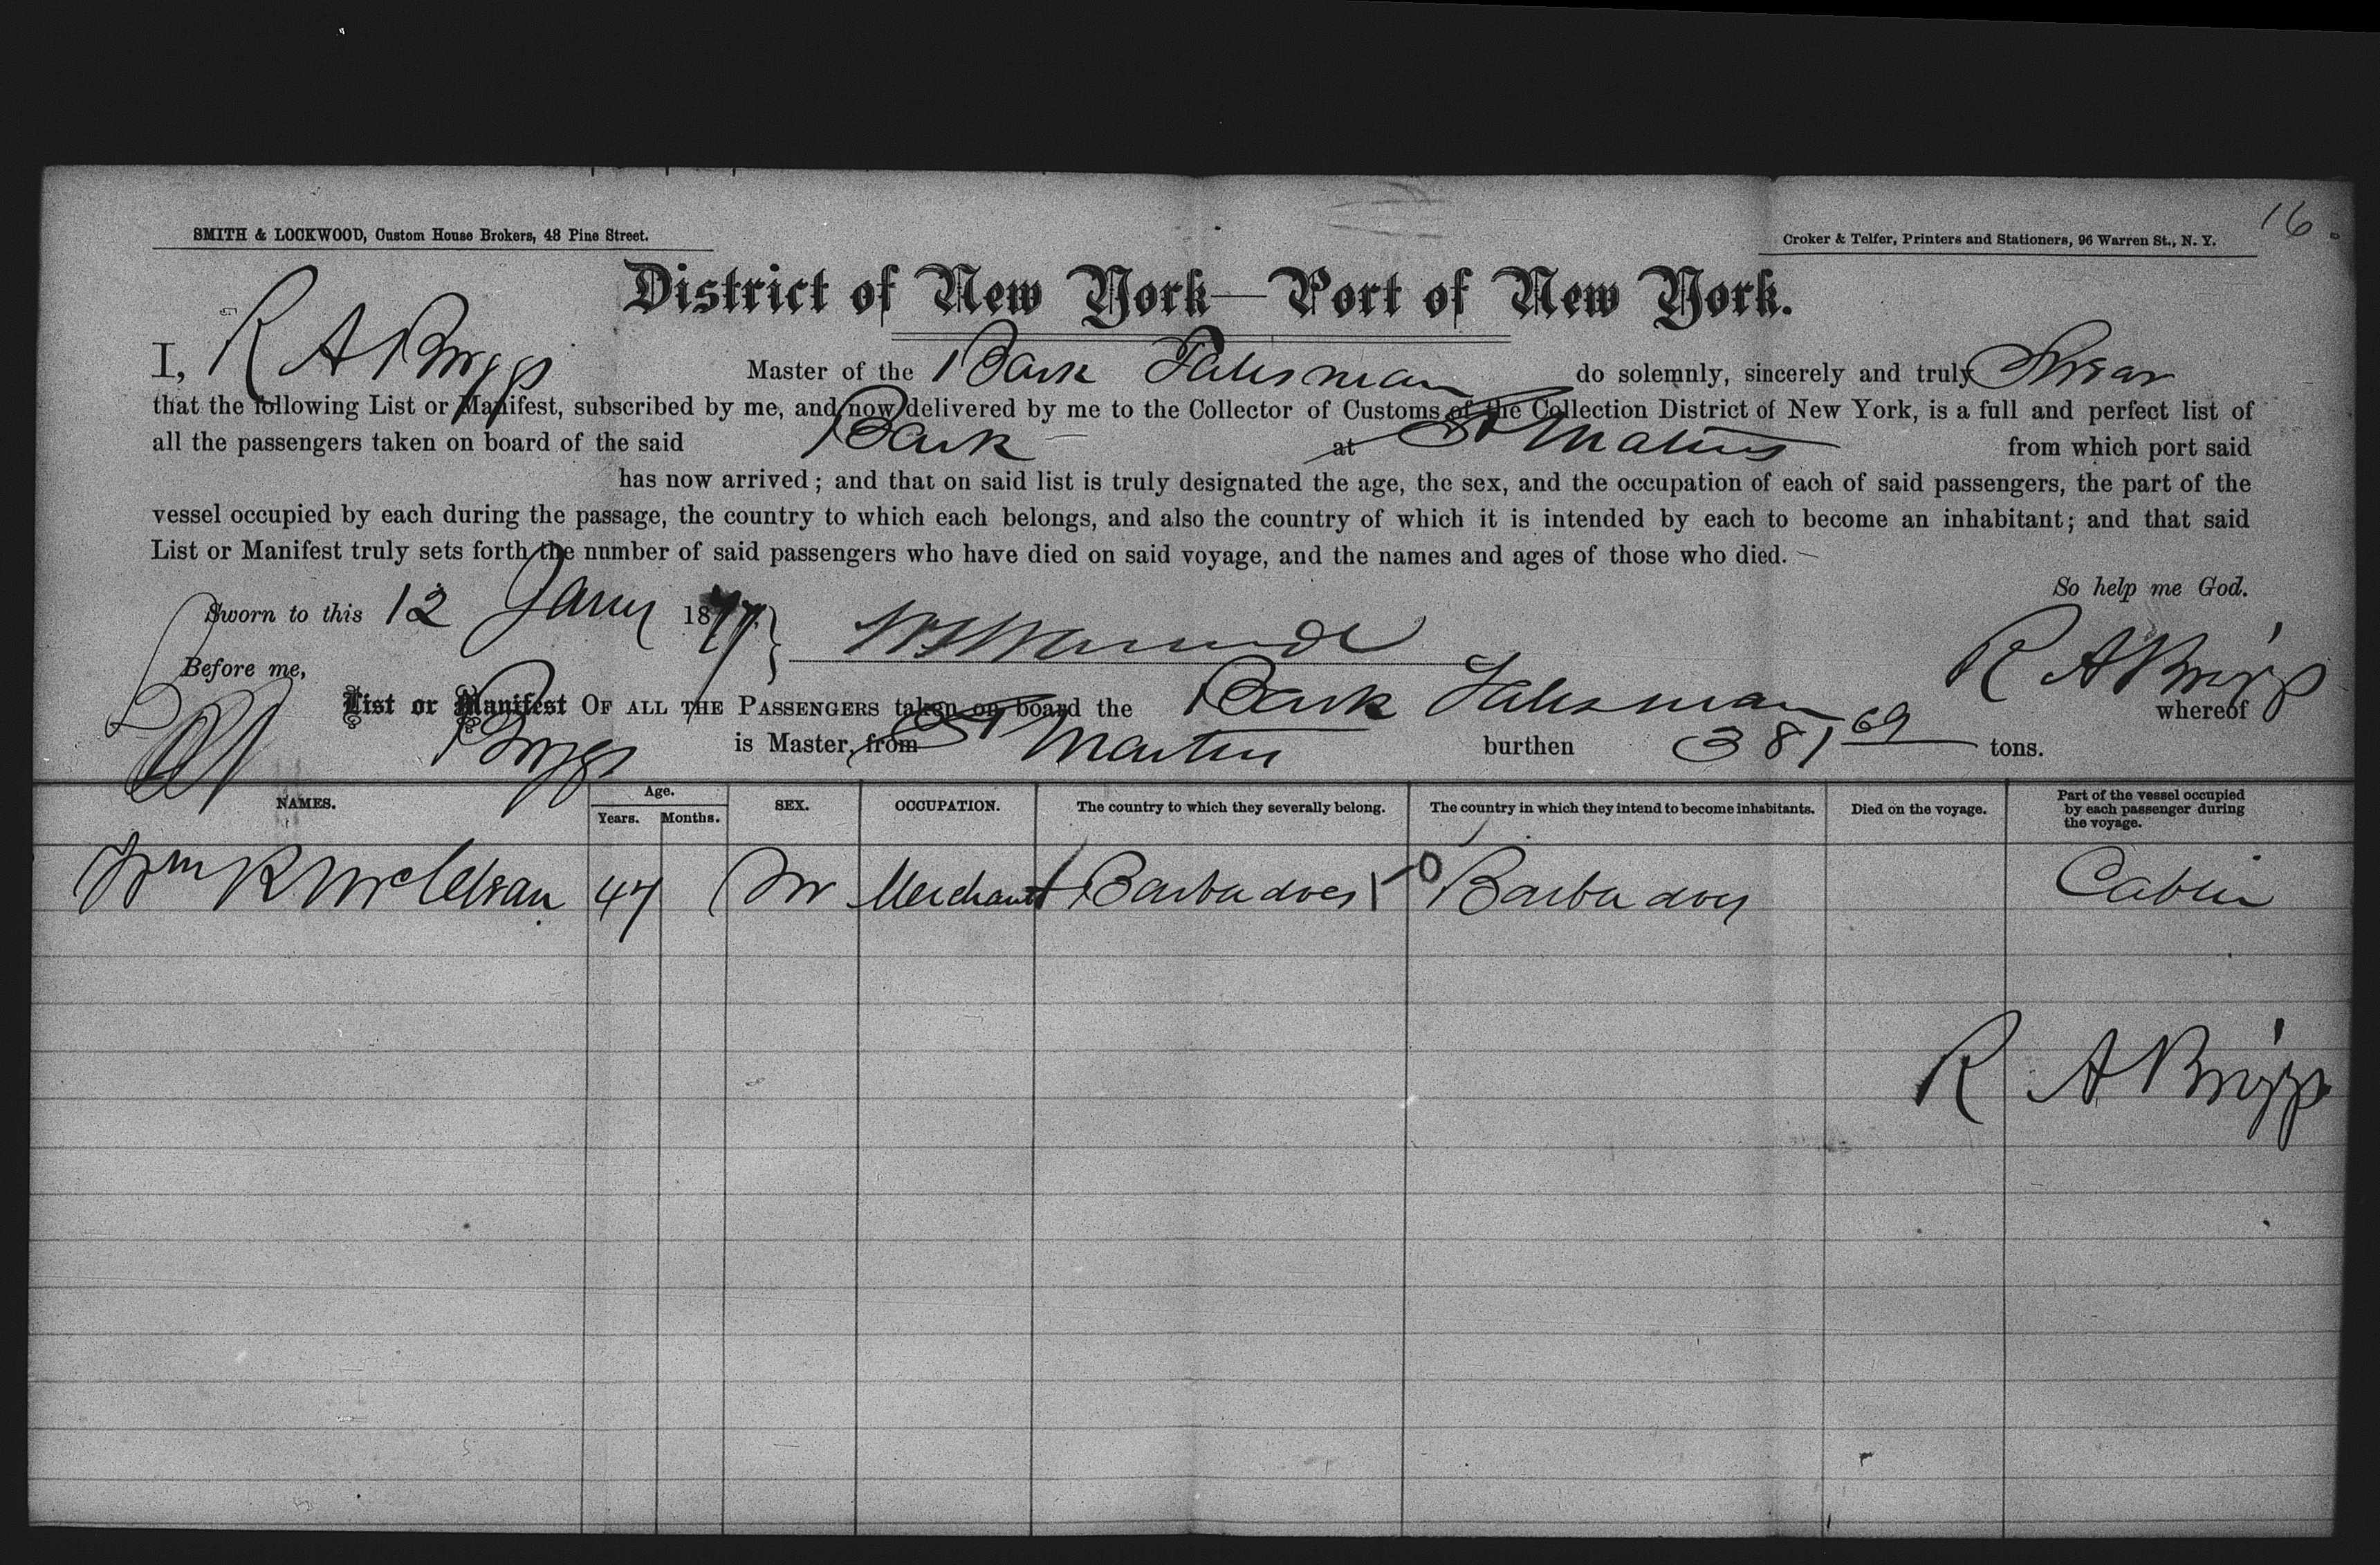 16.
SMITH & LOCKWOOD, Custom House Brokers, 48 Pine Street.
Croker & Telfer, Printers and Stationers, 96 Warren St., N. Y.
District of New York—Port of New York.
I, R A Briggs Master of the Bark Talisman do solemnly, sincerely and truly Swear
that the following List or Manifest, subscribed by me, and now delivered by me to the Collector of Customs of the Collection District of New York, is a full and perfect list of
all the passengers taken on board of the said Bark at St Matins from which port said
has now arrived; and that on said list is truly designated the age, the sex, and the occupation of each of said passengers, the part of the
vessel occupied by each during the passage, the country to which each belongs, and also the country of which it is intended by each to become an inhabitant; and that said
List or Manifest truly sets forth the number of said passengers who have died on said voyage, and the names and ages of those who died.
So help me God.
Sworn to this 12 Jany 1877
R A Briggs
Before me,
List or Manifest OF ALL THE PASSENGERS taken on board the Bark Talisman whereof
Briggs is Master, from St Martins burthen 381 69 tons.
NAMES. Age. Years. Months. SEX. OCCUPATION. The country to which they severally belong. The country in which they intend to become inhabitants. Died on the voyage. Part of the vessel occupied by each passenger during the voyage.
Wm R McClean 47 M Merchant Barbadoes Barbadoes Cabin
R A Briggs